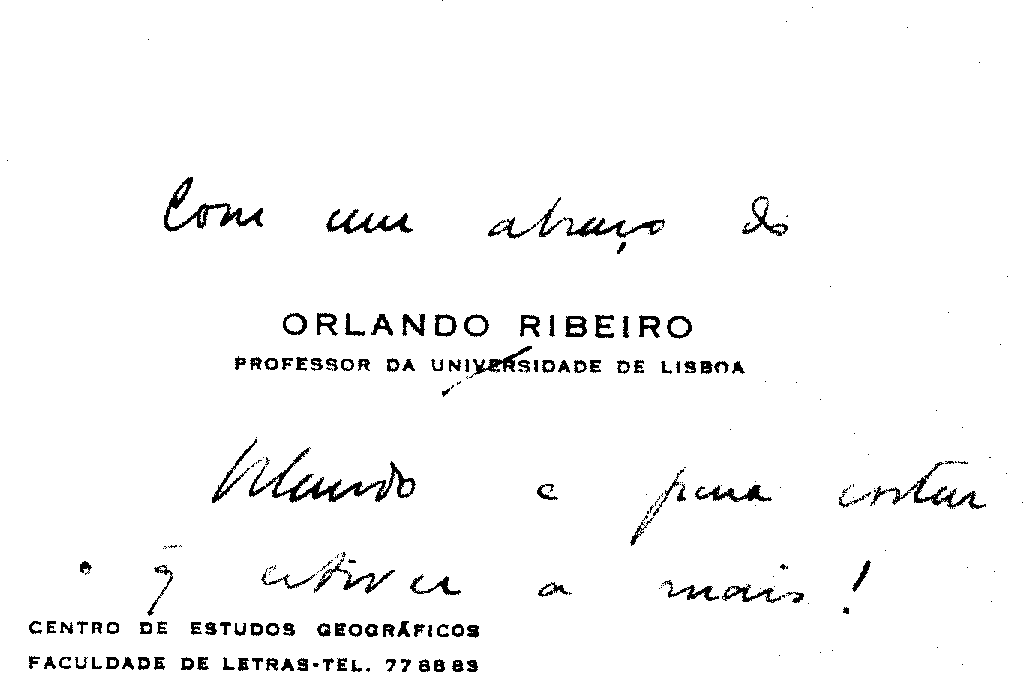 Com um abraço do
ORLANDO RIBEIRO
PROFESSOR DA UNIVERSIDADE DE LISBOA
Orlando e para cortar
o q̃ estiver a mais!
CENTRO DE ESTUDOS GEOGRÁFICOS
FACULDADE DE LETRAS-TEL. 776883